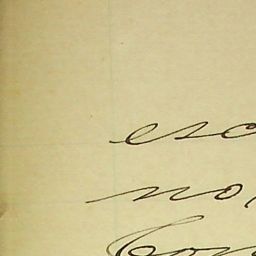 esc
no,
Con